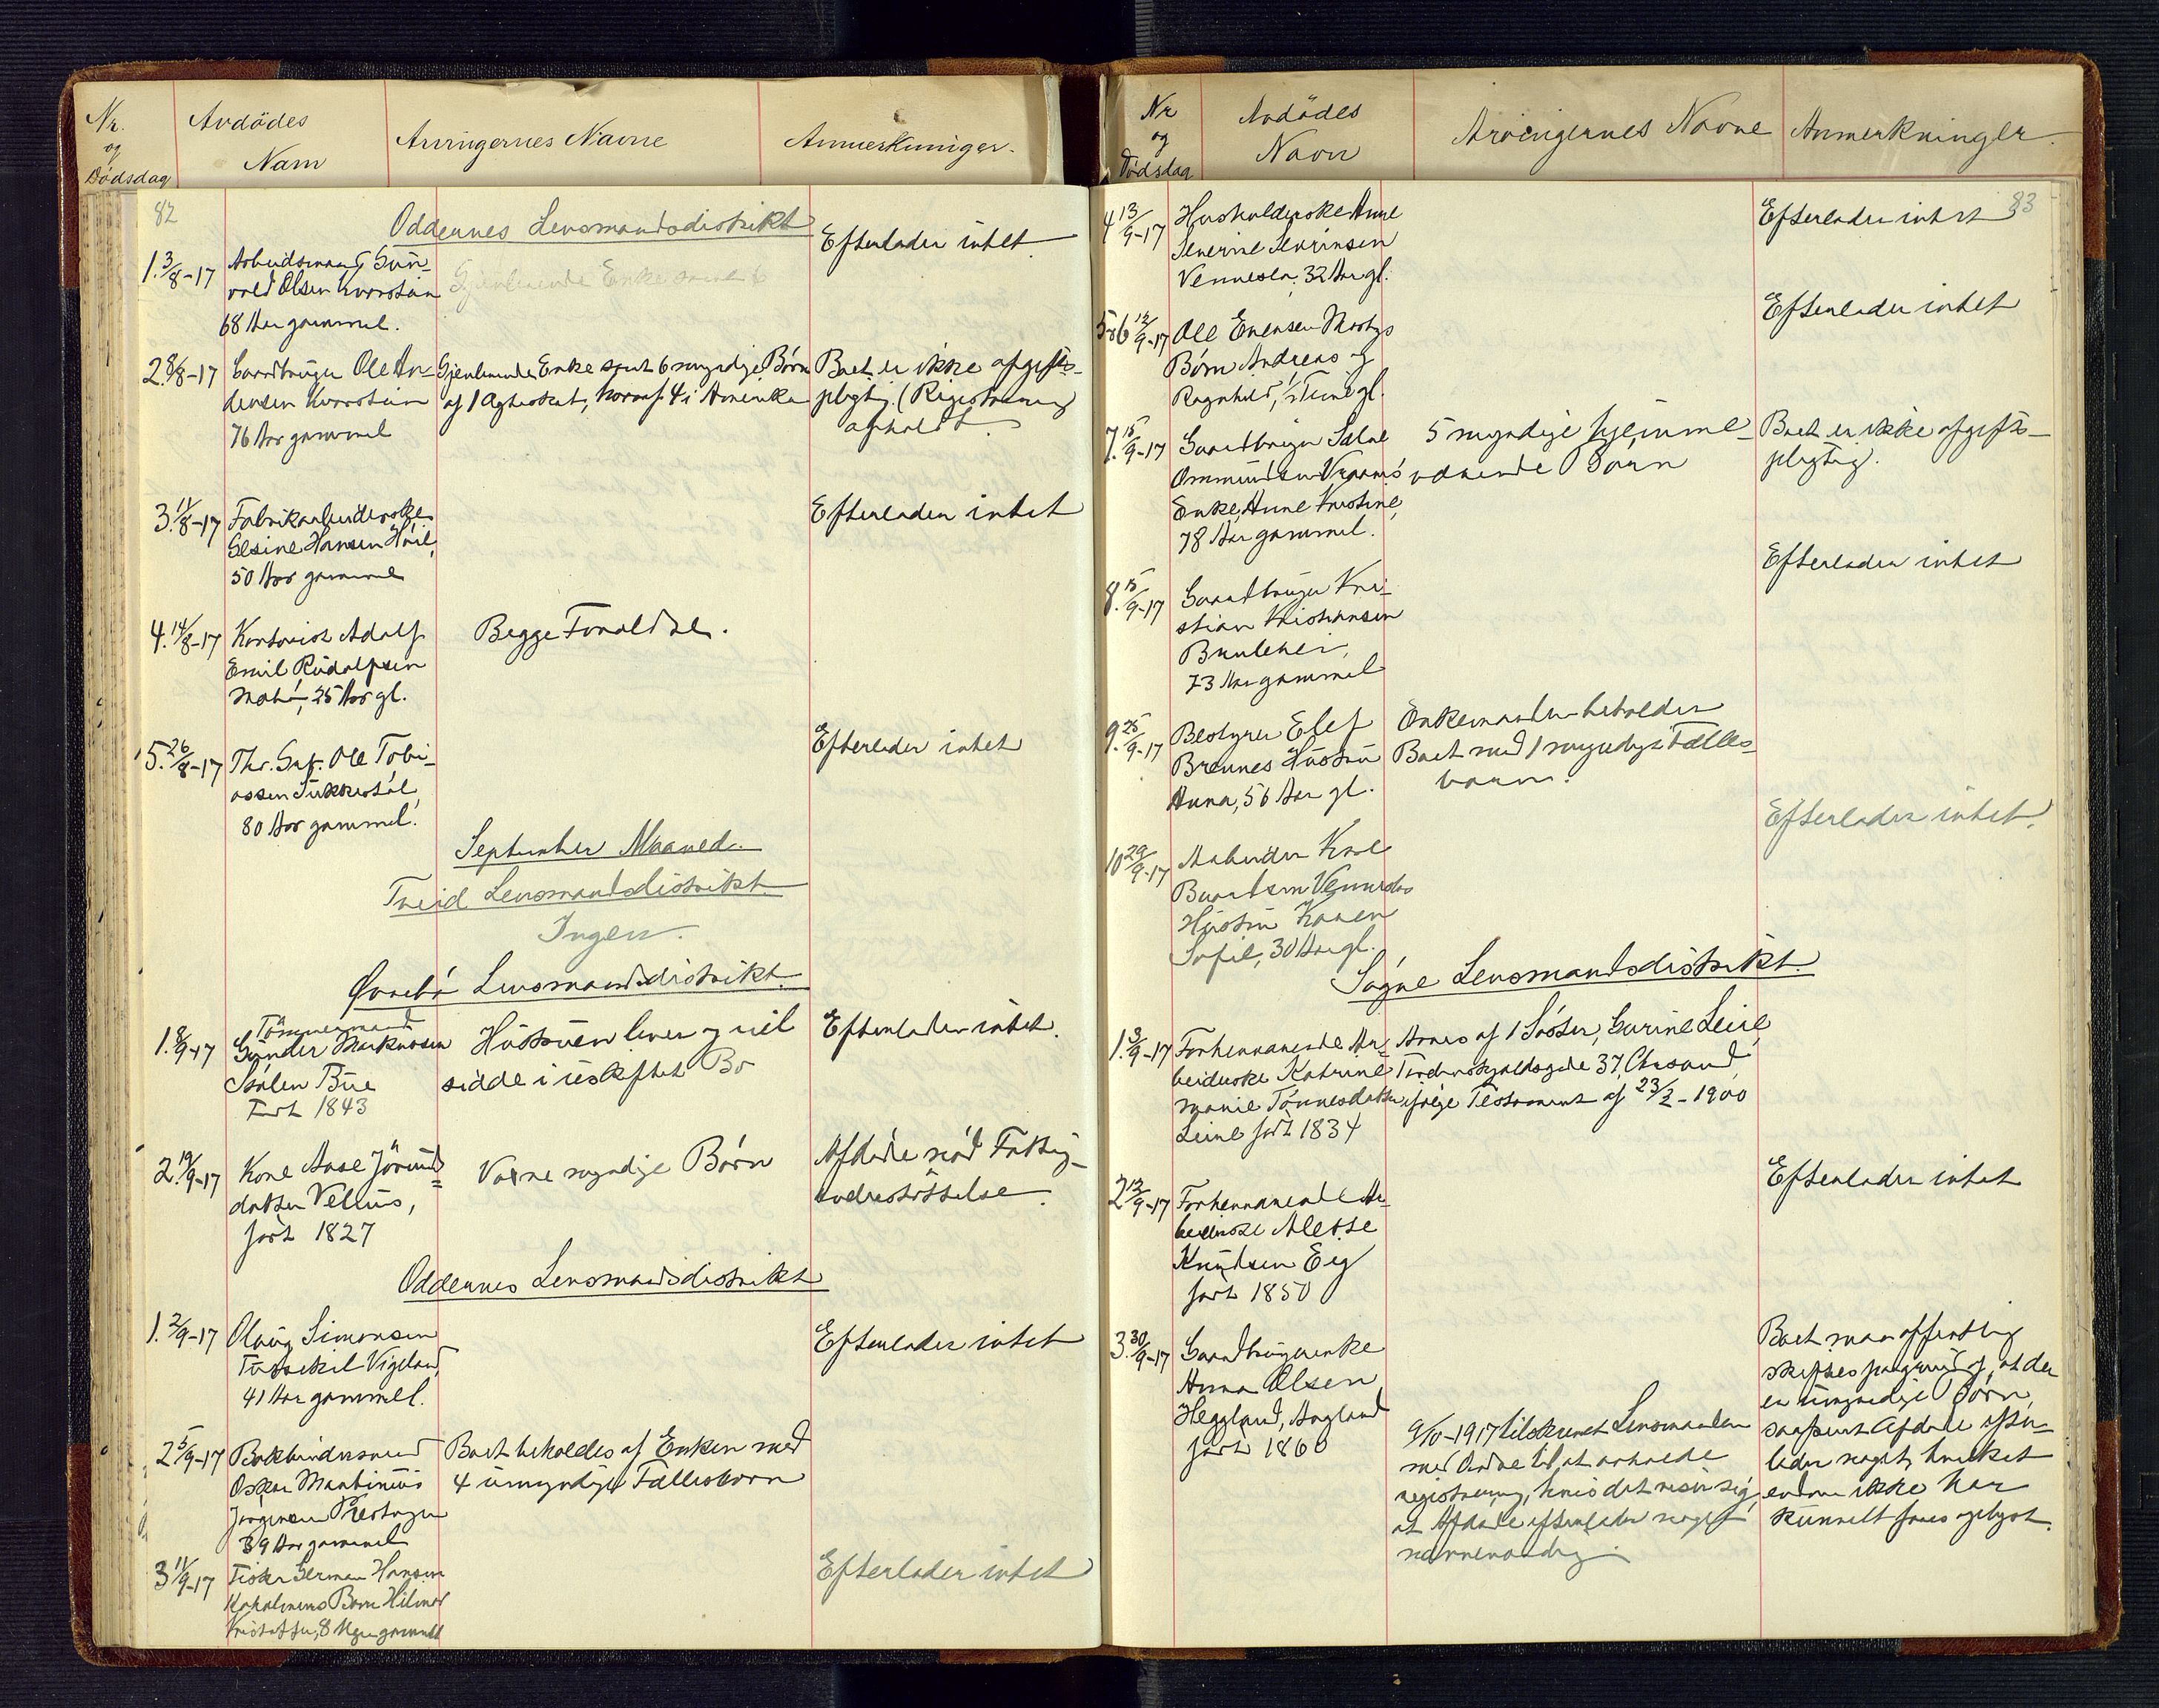 Nr.
og
Dödsdag
Avdödes
Navn
Arvingernes Navne
Anmerkninger.
82
Oddernes Lensmandsdistrikt
1. 3/8-17
Arbeidsmand Gun-
vald Olsen Kvarstein
68 Aar gammel.
Gjenlevende Enke samt 6
Efterlader intet
2. 8/8-17
Gaardbruger Ole An-
densen Kvarstein
76 Aar gammel
Gjenlevende Enke samt 6 myndige Børn
af 1 Ægteskab, hvoraf 4 i Amerika
Boet er ikke afgifts-
pligtig. (Registrering
afholdt.
3. 11/8-17
Fabrikarbeiderske
Gesine Hansen
50 Aar gammel
Efterlader intet
4. 14/8-17
Kontorist Adolf
Emil Rudolfsen
25 Aar gl.
Begge Forældre.
5. 26/8-17
Ole Tobi-
assen
80 Aar gammel.
Efterlader intet
September Maaned.
Tveid Lensmandsdistrikt
Ingen.
Øvrebø Lensmandsdistrikt.
1. 8/9-17
Tömmermand
Gunder Markussen
Stølen Bue
Født 1843
Hustruen lever og vil
sidde i uskiftet Bo
Efterlader intet.
2. 19/9-17
Kone Aase Jörunds
datter
født 1827
Voxne myndige Børn
Afdøde nød Fattig-
understøttelse.
Oddernes Lensmandsdistrikt
1. 2/9-17
Olaug Simonsen
Vigeland,
41 Aar gammel.
Efterlader intet
2 5/9-17
Bokbindersvend
Oskar Martinius
Jørgensen
39 Aar gammel
Boet beholdes af Enken med
4 umyndige Fællesbørn
3 11/9-17
Fisker German Hansen
Barn Hilmar
Kristoffer, 8 gammelt
Efterlader intet
Nr
og
Dödsdag
Avdödes
Navn
Arvingernes Navne
Anmerkninger.
83
4 13/9-17
Husholderske Anne
Severine Severinsen
Vennesla, 32 Aar gl.
Efterlader intet
5 o 6 12/9-17
Ole Evensen
Børn Andreas og
Ragnhild, 1/2 Time gl.
Efterlader intet
7. 15/9-17
Gaardbruger Salve
Ommundsen
Enke, Anne Kristine,
78 Aar gammel.
5 myndige hjemme-
værende Børn
Boet er ikke afgifts-
pligtig.
8. 15/9-17
Gaardbruger Kri-
stian Kristiansen
73 Aar gammel
Efterlader intet
9. 25/9-17
Bestyrer Elef
Brennes Hustru
Anna, 56 Aar gl.
Enkemanden beholder
Boet med 1 myndigt Fælles-
barn.
10 29/9-17
Arbeider Karl
Vennesla
Hustru Karen
Sofie, 30 Aar gl.
Efterlader intet.
Søgne Lensmandsdistrikt.
1. 3/9-17
Forhenværende Ar-
beiderske Katrine
Marie Tønnesdatter
født 1834
Arves af 1 Søster, Gurine
Tordenskjoldsgade 37, Chrsand,
ifølge Testament af 23/2-1900
2 12/9-17
Forhenværende Ar-
beiderske Aletse
Knudsen Eig
født 1850
Efterlader intet
3. 30/9-17
Gaardbrugerenke
Anna Olsen
Heggland, Augland
født 1860
9/10-1917 tilskrevet Lensmanden
med Ordre til at avholde
registrering, hvis det viser sig,
at Afdøde efterlader noget
nævneværdig.
Boet maa offentlig
skiftes paagrund af, at der
er umyndige Børn,
saafremt Afdøde efter-
lader noget, hvilket
endnu ikke har
kunnet faaes oplyst.